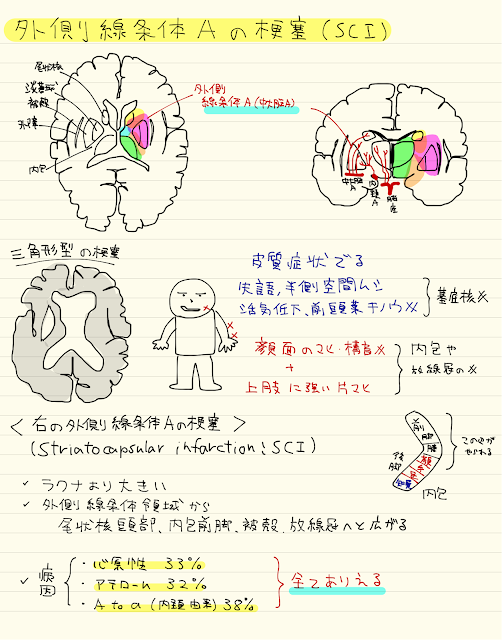 外側線条体Aの梗塞(SCI)
尾状核
淡蒼球
被殻
外包
内包
外側
線条体A(中大脳A)
中大脳
A
内頸
A
三角形型の梗塞
皮質症状でる
失語、半側空間ムシ
活気低下、前頭葉キノウ××
基底核××
顔面のマヒ・構音××
+
上肢に強い片マヒ
内包や
放線冠の××
<右の外側線条体Aの梗塞>
(Striatocapsular infarction:SCI)
前
脚
膝
顔
手
足
知覚
後
脚
内包
✓ ラクナより大きい
✓ 外側線条体領域から
尾状核頭部、内包前脚、被殻、放線冠へと広がる
✓ 病因
・心原性 33%
・アテローム 32%
・A to a (内頸由来) 38%
全てありえる